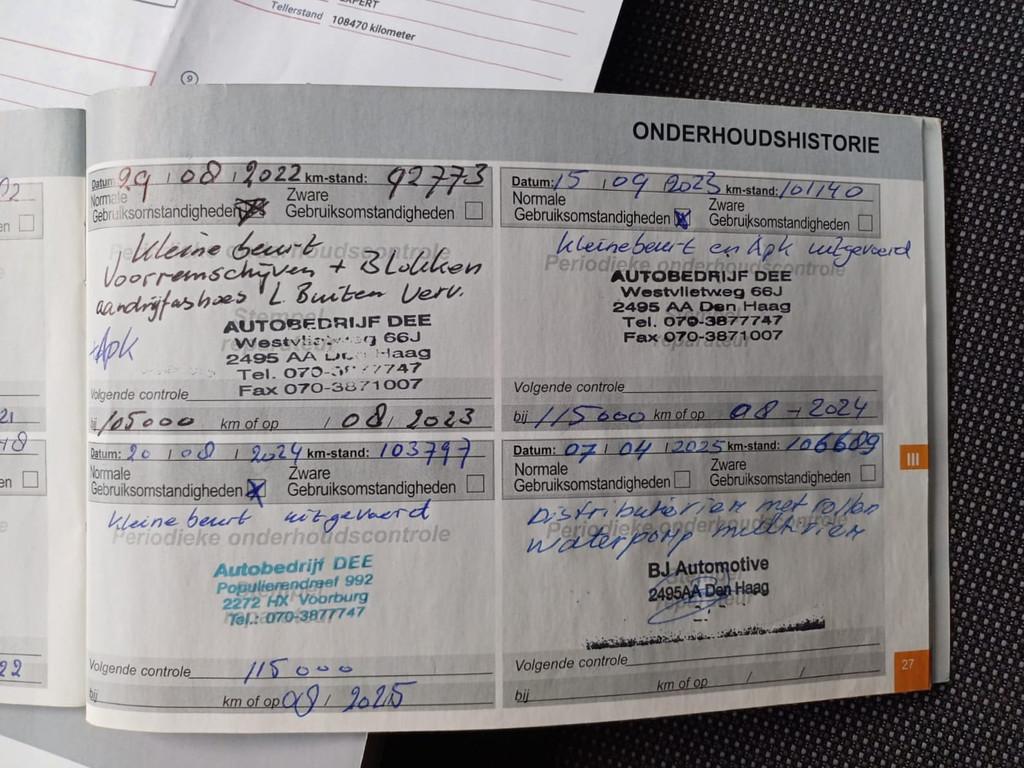 EXPERT
Tellerstand 108470 kilometer
9
ONDERHOUDSHISTORIE
Datum: 29 08 2022 km-stand: 92773
Normale Gebruiksomstandigheden
Zware Gebruiksomstandigheden
Periodieke onderhoudscontrole
Kleine beurt
Voorremschijven + Blokken
aandrijfashoes L. Buiten Verv.
+Apk
AUTOBEDRIJF DEE
Westvlietweg 66J
2495 AA Den Haag
Tel. 070-3877747
Fax 070-3871007
Volgende controle
bij 105000 km of op / 08 / 2023
Datum: 15 09 2023 km-stand: 101140
Normale Gebruiksomstandigheden
Zware Gebruiksomstandigheden
Kleine beurt en Apk uitgevoerd
Periodieke onderhoudscontrole
AUTOBEDRIJF DEE
Westvlietweg 66J
2495 AA Den Haag
Tel. 070-3877747
Fax 070-3871007
Stempel
reparateur
Volgende controle
bij 115000 km of op 08 - 2024
Datum: 20 08 2024 km-stand: 103797
Normale Gebruiksomstandigheden
Zware Gebruiksomstandigheden
Kleine beurt uitgevoerd
Periodieke onderhoudscontrole
Autobedrijf DEE
Populierendreef 992
2272 HX Voorburg
Tel.: 070-3877747
Volgende controle 115000
bij km of op 08 / 2025
Datum: 07 04 2025 km-stand: 106689
Normale Gebruiksomstandigheden
Zware Gebruiksomstandigheden
Distributieriem met rollen
Periodieke onderhoudscontrole
Waterpomp multiriem
BJ Automotive
2495AA Den Haag
Volgende controle
bij km of op / /
III
27